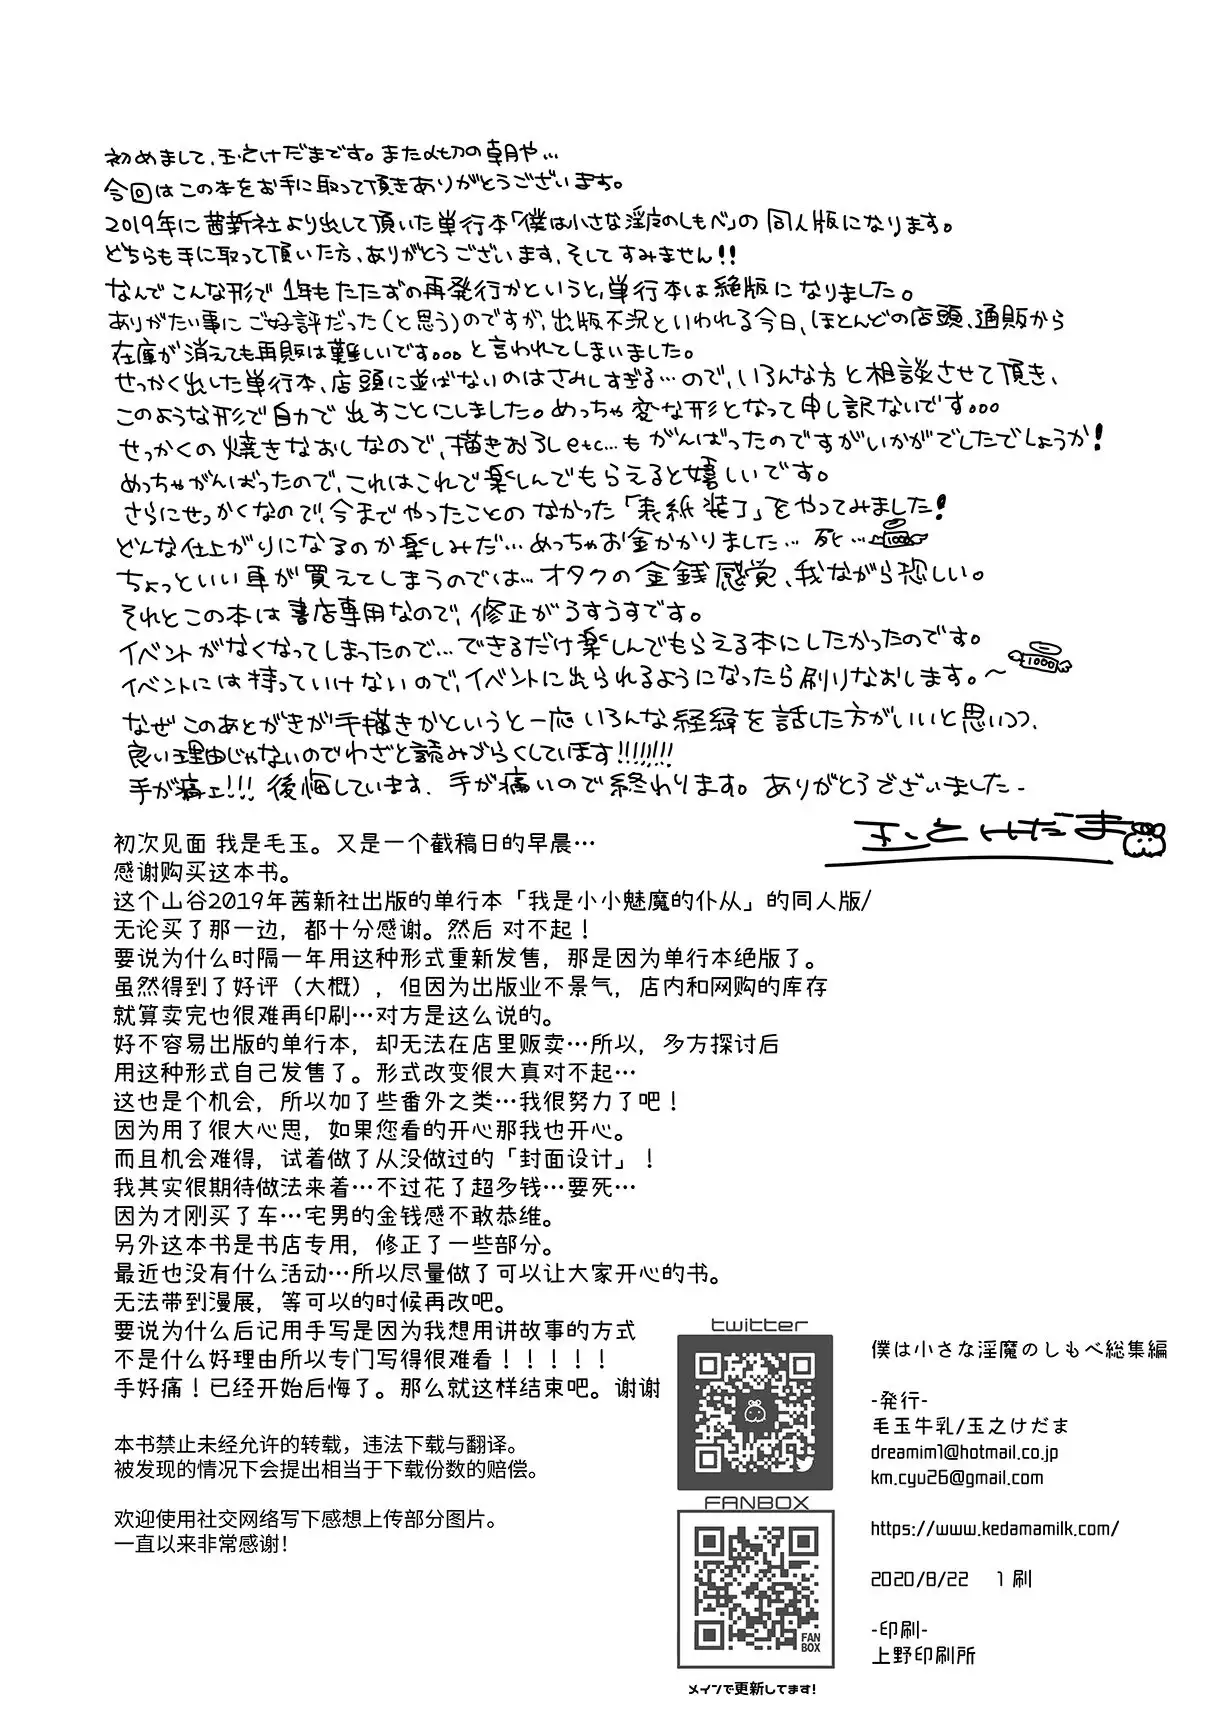 初めまして、玉之けだまです。また〆切の朝や…
今回はこの本をお手に取って頂きありがとうございます。
2019年に茜新社より出して頂いた単行本「僕は小さな淫魔のしもべ」の同人版になります。
どちらも手に取って頂いた方、ありがとうございます、そしてすみません!!
なんでこんな形で1年もたたずの再発行かというと、単行本は絶版になりました。
ありがたい事にご好評だった(と思う)のですが、出版不況といわれる今日、ほとんどの店頭、通販から
在庫が消えても再販は難しいです。。。と言われてしまいました。
せっかく出した単行本、店頭に並ばないのはさみしすぎる…ので、いろんな方と相談させて頂き、
このような形で自力で出すことにしました。めっちゃ変な形となって申し訳ないです。。。
せっかくの焼きなおしなので、描きおろしetc...もがんばったのですがいかがでしたでしょうか!
めっちゃがんばったので、これはこれで楽しんでもらえると嬉しいです。
さらにせっかくなので、今までやったことのなかった「表紙装丁」をやってみました!
どんな仕上がりになるのか楽しみだ…めっちゃお金かかりました…死…
ちょっといい車が買えてしまうのでは…オタクの金銭感覚、我ながら恐しい。
それとこの本は書店専用なので、修正がうすうすです。
イベントがなくなってしまったので…できるだけ楽しんでもらえる本にしたかったのです。
イベントには持っていけないので、イベントに出られるようになったら刷りなおします。～
1000
なぜこのあとがきが手描きかというと一応いろんな経緯を話した方がいいと思いつつ、
良い理由じゃないのでわざと読みづらくしています!!!!!!!!
手が痛ェ!!! 後悔しています、手が痛いので終わります。ありがとうございました-
玉之けだま
初次见面 我是毛玉。又是一个截稿日的早晨…
感谢购买这本书。
这个山谷2019年茜新社出版的单行本「我是小小魅魔的仆从」的同人版/
无论买了那一边，都十分感谢。然后 对不起！
要说为什么时隔一年用这种形式重新发售，那是因为单行本绝版了。
虽然得到了好评（大概），但因为出版业不景气，店内和网购的库存
就算卖完也很难再印刷…对方是这么说的。
好不容易出版的单行本，却无法在店里贩卖…所以，多方探讨后
用这种形式自己发售了。形式改变很大真对不起…
这也是个机会，所以加了些番外之类…我很努力了吧！
因为用了很大心思，如果您看的开心那我也开心。
而且机会难得，试着做了从没做过的「封面设计」！
我其实很期待做法来着…不过花了超多钱…要死…
因为才刚买了车…宅男的金钱感不敢恭维。
另外这本书是书店专用，修正了一些部分。
最近也没有什么活动…所以尽量做了可以让大家开心的书。
无法带到漫展，等可以的时候再改吧。
要说为什么后记用手写是因为我想用讲故事的方式
不是什么好理由所以专门写得很难看！！！！！
手好痛！已经开始后悔了。那么就这样结束吧。谢谢
本书禁止未经允许的转载，违法下载与翻译。
被发现的情况下会提出相当于下载份数的赔偿。
欢迎使用社交网络写下感想上传部分图片。
一直以来非常感谢!
twitter
FANBOX
FAN
BOX
メインで更新してます!
僕は小さな淫魔のしもべ総集編
-発行-
毛玉牛乳/玉之けだま
dreamim1@hotmail.co.jp
km.cyu26@gmail.com
https://www.kedamamilk.com/
2020/8/22 1刷
-印刷-
上野印刷所